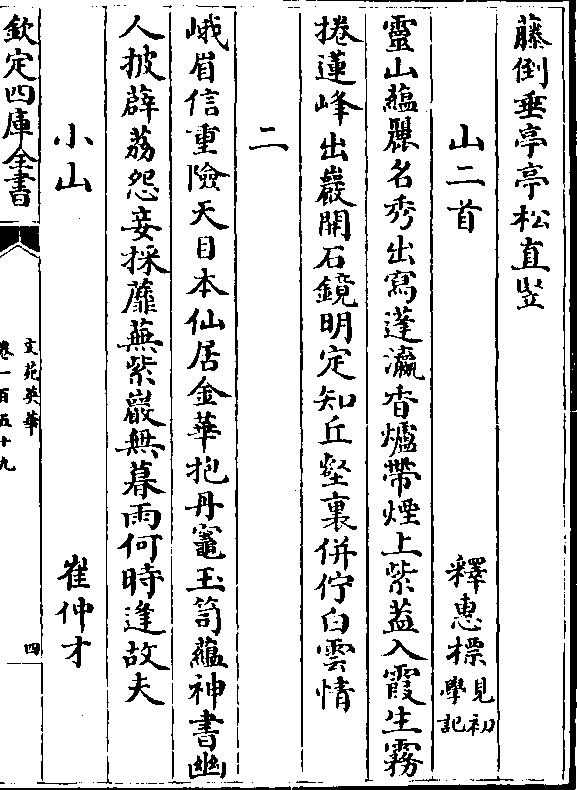 藤倒垂亭亭松直豎
山二首 釋惠摽見初學記
靈山藴麗名秀出寫蓬瀛香爐帶煙上紫葢入霞生霧
捲蓮峰出巖開石鏡明定知丘壑裏併佇白雲情
二
峨眉信重險天目本仙居金華抱丹竈玉笥藴神書幽
人披薜荔怨妾採蘼蕪紫巖無暮雨何時逢故夫
小山 崔仲才
欽定四庫全書
文苑英華
卷一百五十九
四